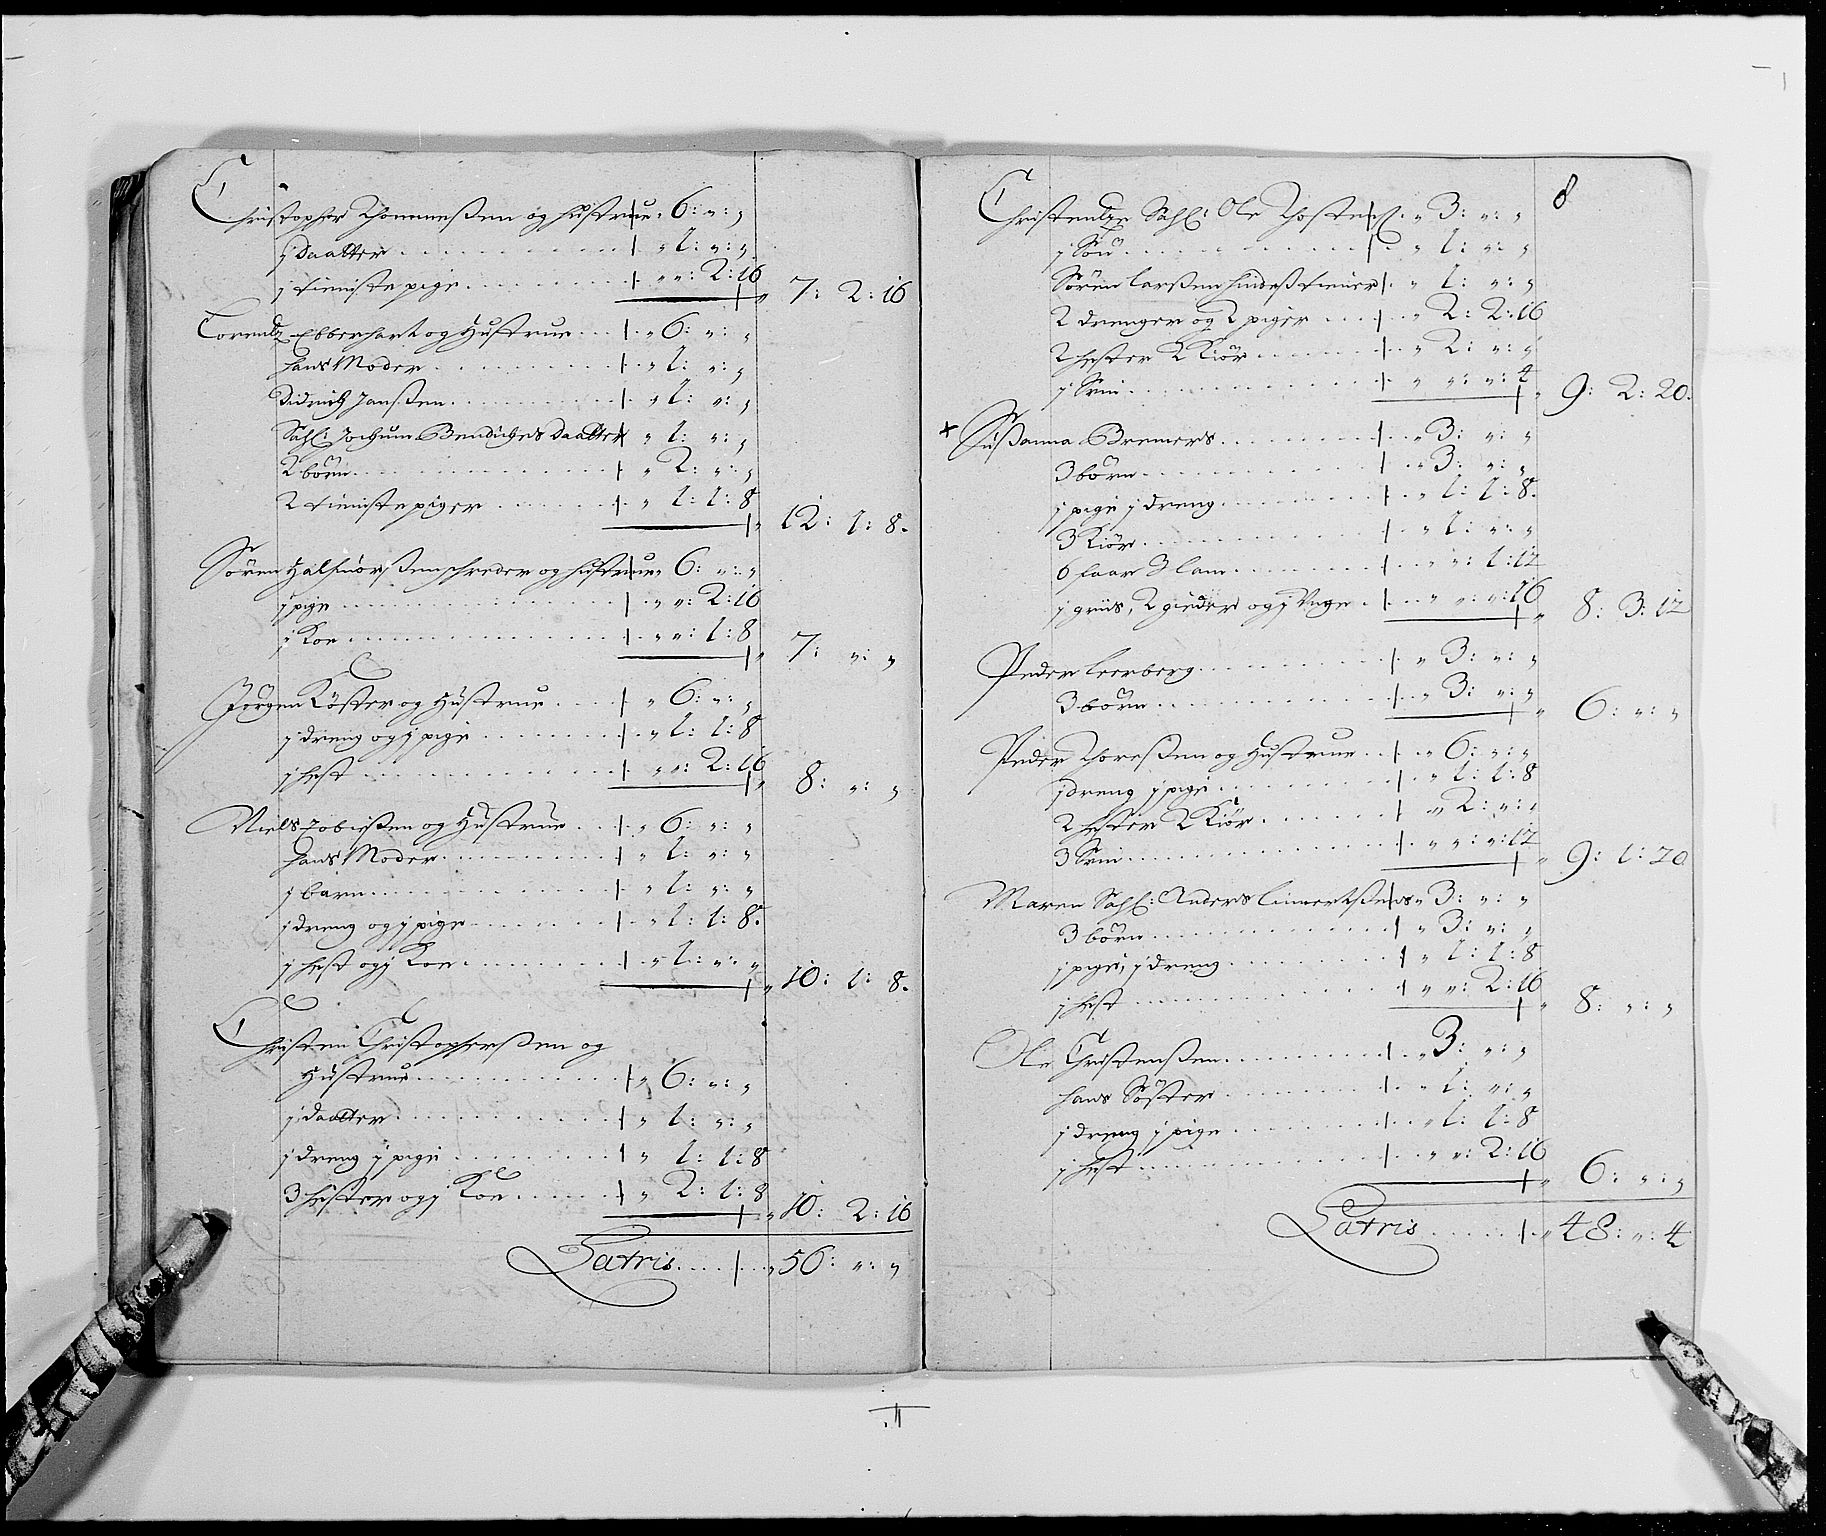 Christopher Thommeßen og hustrue „ 6: „: „
j daatter . . . „ 1: „: „
j tieniste pige . . . „ „: 2: 16 „ 7: 2: 16
Lorentz Ebberhart og Hustrue . . . „ 6: „: „
hans Moder . . . „ 1: „: „
Didrich Janßen . . . „ 1: „: „
Sahl: Jochum Bendichs daatter „ 1: „: „
2 børn . . . „ 2: „: „
2 tieniste piger . . . „ 1: 1: 8 „ 12: 1: 8.
Søren schreder og hustrue „ 6: „: „
j pige . . . „ „: 2: 16
j Koe . . . „ „: 1: 8 „ 7: „: „
Jørgen Køster og Hustrue . . . „ 6: „: „
j dreng og j pige . . . „ 1: 1: 8
j hest . . . „ „: 2: 16 „ 8: „: „
Niels Tobießen og Hustrue . . . „ 6: „: „
hans Moder . . . „ 1: „: „
j barn . . . „ 1: „: „
j dreng og j pige . . . „ 1: 1: 8.
j hest og j Koe . . . „ 1: „: „ „ 10: 1: 8.
Christen Christopherßen og
Hustrue . . . „ 6: „: „
j daatter . . . „ 1: „: „
j dreng j pige . . . „ 1: 1: 8
3 hester og j Koe . . . „ 2: 1: 8 „ 10: 2: 16
Latris . . . „ 56: „: „
8
Sahl: Ole „ 3: „: „
j Søn . . . „ 1: „: „
Søren Larßen hindeß tiener „ 1: „: „
2 drenger og 2 piger . . . „ 2: 2: 16
2 hester 2 Kiør . . . „ 2: „: „
j Svin . . . „ „: „: 4 „ 9: 2: 20.
+ Sußanna Bremers . . . „ 3: „: „
3 børn . . . „ 3: „: „
j pige j dreng . . . „ 1: 1: 8.
3 Kiør . . . „ 1: „: „
6 faar 3 lam . . . „ „: 1: 12
j griis, 2 gieder og j . . . „ „: „: 16 „ 8: 3: 12
Peder Leerberg . . . „ 3: „: „
3 børn . . . „ 3: „: „ „ 6: „: „
Peder Thoreßen og Hustrue . . . „ 6: „: „
j dreng j pige . . . „ 1: 1: 8
2 hester 2 Kiør . . . „ 2: „: „
3 Svin . . . „ „: „: 12 „ 9: 1: 20
Maren Sahl: Anders „ 3: „: „
3 børn . . . „ 3: „: „
j pige, j dreng . . . „ 1: 1: 8
j hest . . . „ „: 2: 16 „ 8: „: „
Ole Christenßen . . . „ 3: „: „
hans Søster . . . „ 1: „: „
j dreng j pige . . . „ 1: 1: 8
j hest . . . „ „: 2: 16 „ 6: „: „
Latris . . . „ 48: „: 4